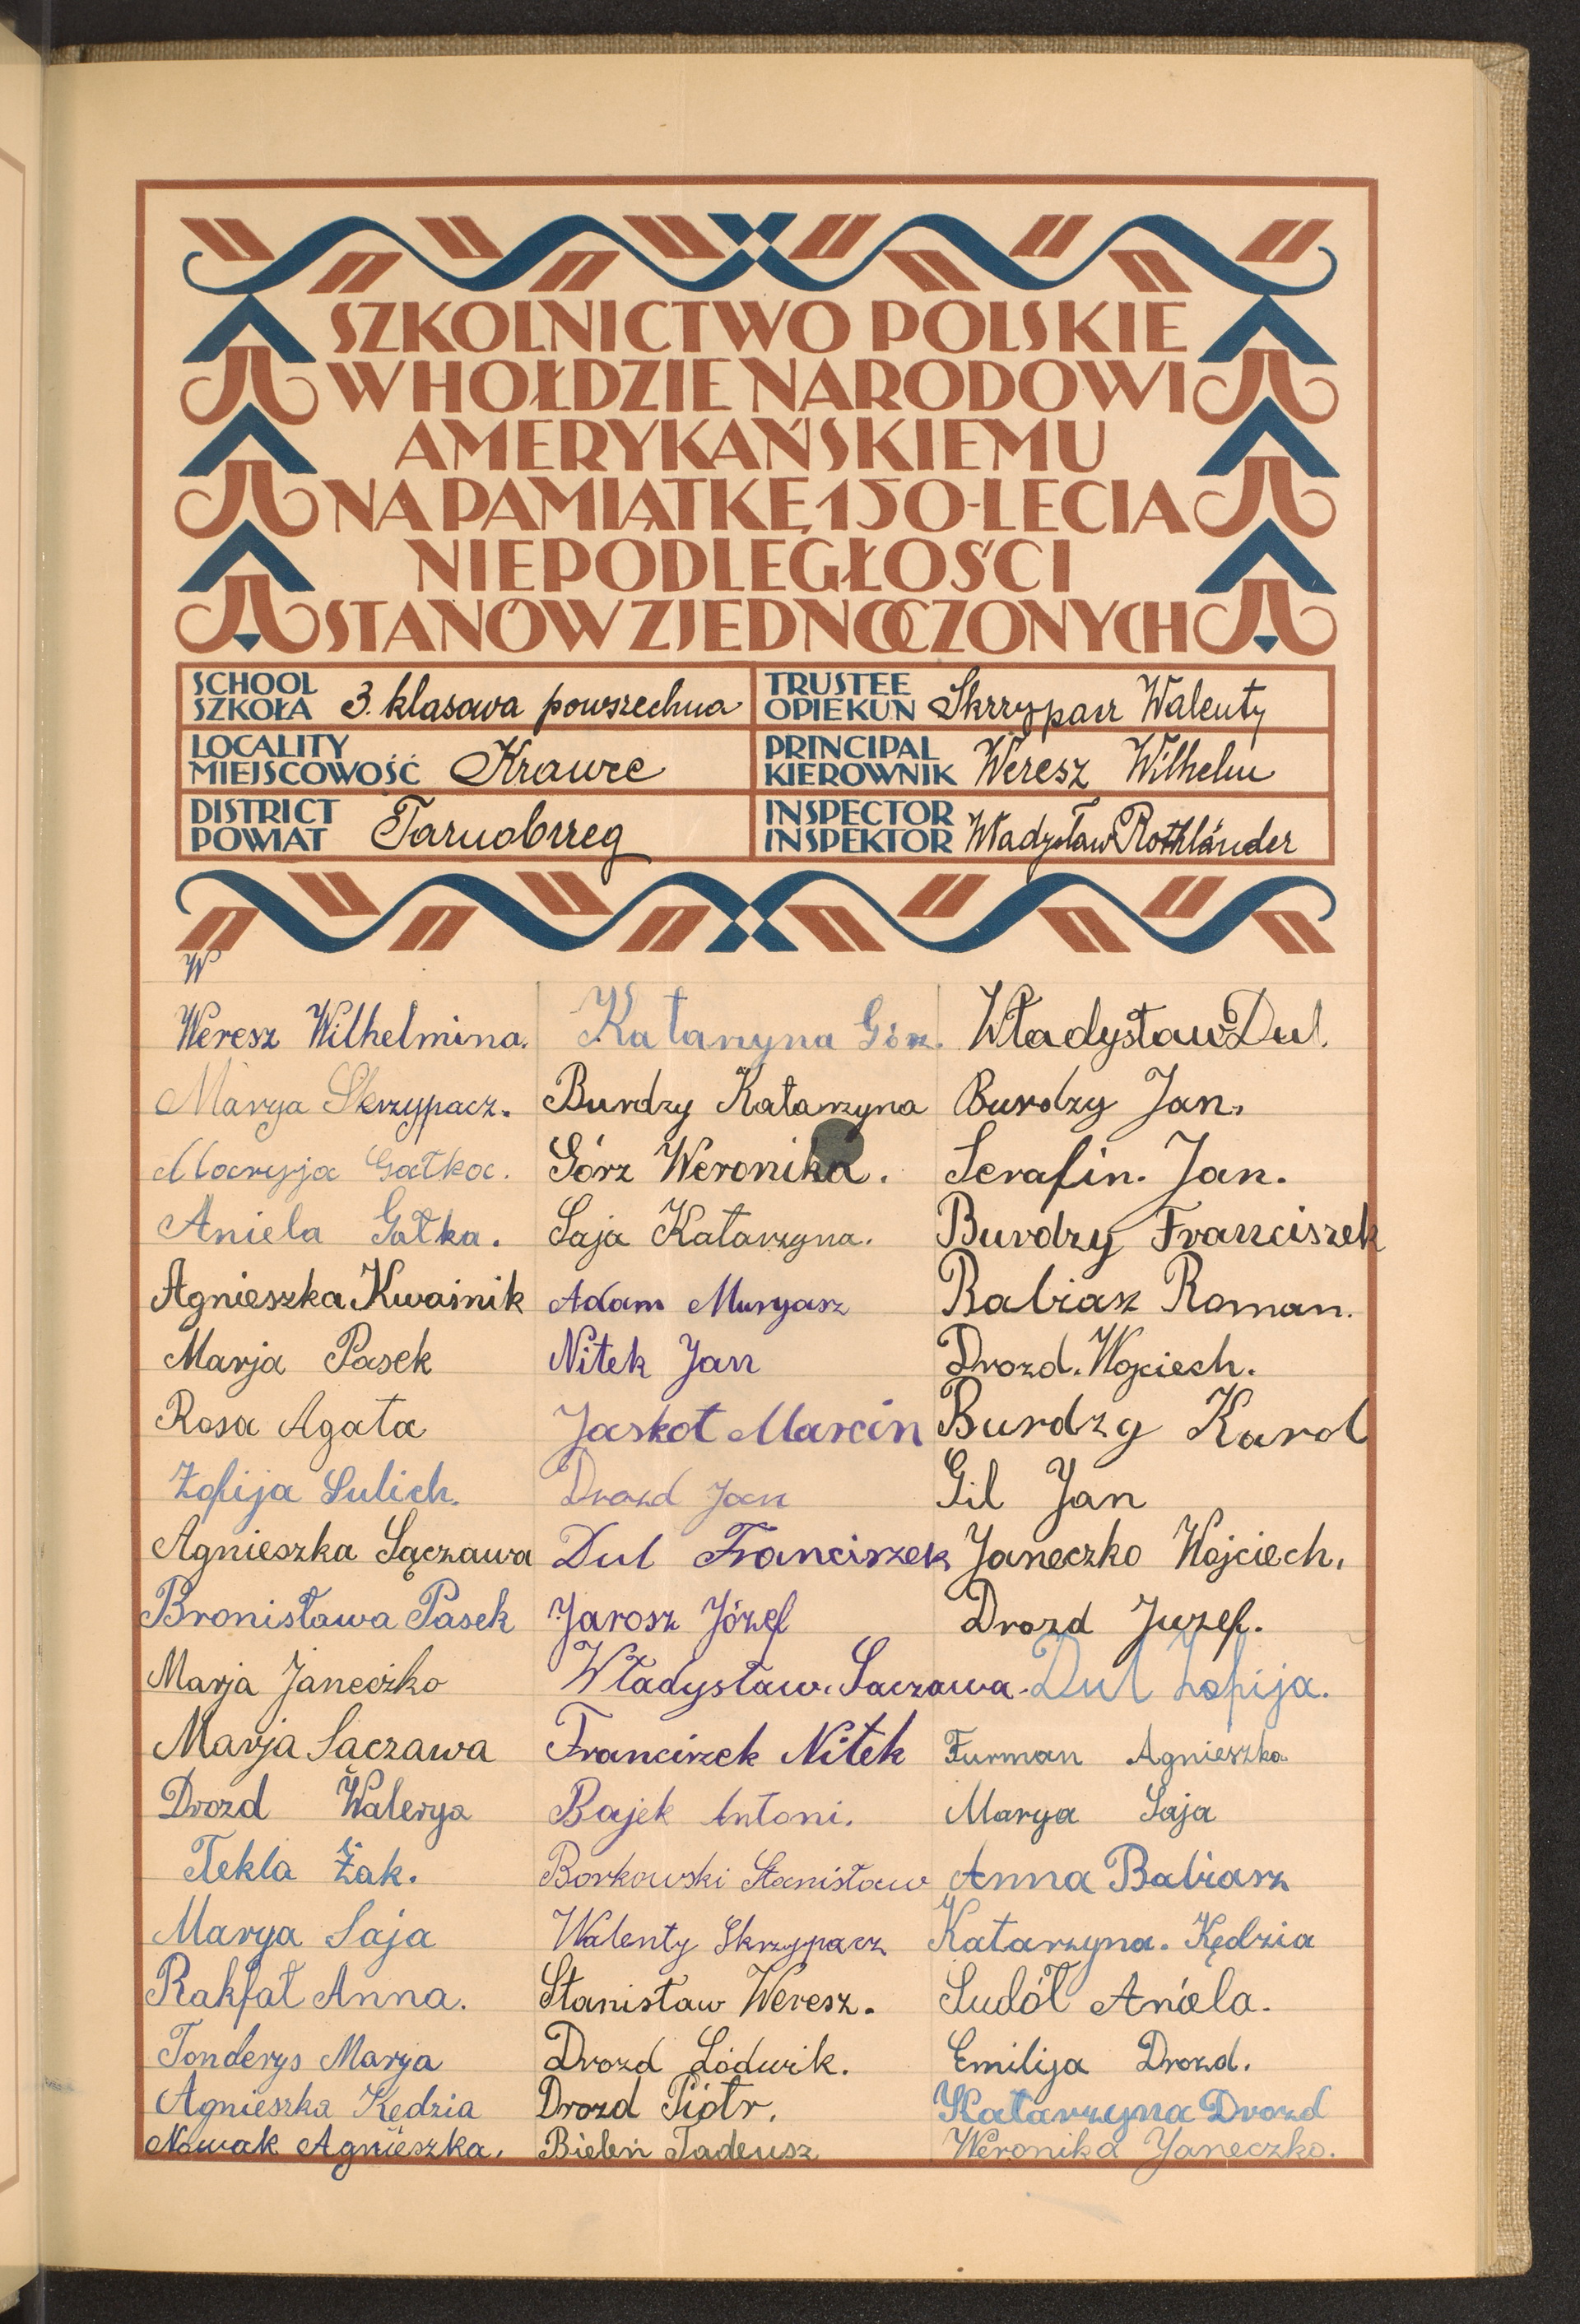 SZKOLNICTWO POLSKIE
W HOŁDZIE NARODOWI
AMERYKAŃSKIEMU
NA PAMIĄTKĘ 150-LECIA
NIEPODLEGŁOŚCI
STANÓW ZJEDNOCZONYCH
SCHOOL
SZKOŁA 3. klasowa powszechna
TRUSTEE
OPIEKUN Skrzypacz Walenty
LOCALITY
MIEJSCOWOŚĆ Krawce
PRINCIPAL
KIEROWNIK Weresz Wilhelm
DISTRICT
POWIAT Tarnobrzeg
INSPECTOR
INSPEKTOR Władysław Rothländer
W
Weresz Wilhelmina.
Marya Skrzypacz.
Maryja Gałka.
Aniela Gałka.
Agnieszka Kwaśnik
Marja Pasek
Rosa Agata
Zofija Sulich.
Agnieszka Sączawa
Bronisława Pasek
Marja Janeczko
Marja Saczawa
Drozd Walerya
Tekla Żak.
Marya Saja
Rakfał Anna.
Tonderys Marya
Agnieszka Kędzia
Nowak Agnieszka.
Katarzyna Górz.
Burdzy Katarzyna
Górz Weronika.
Saja Katarzyna.
Adam Murgasz
Nitek Jan
Jaskot Marcin
Drozd Jan
Dul Franciszek
Jarosz Józef
Władysław. Saczawa.
Francizek Nitek
Bajek Antoni.
Borkowski Stanisław
Walenty Skrzypacz
Stanisław Weresz.
Drozd Lódwik.
Drozd Piotr.
Bieleń Tadeusz
Władysław Dul.
Burdzy Jan.
Serafin. Jan.
Burdzy Franciszek
Babiasz Roman.
Drozd. Wojciech.
Burdzy Karol
Gil Jan
Janeczko Wojciech.
Drozd Juzef.
Dul Zofija.
Furman Agnieszka
Marya Saja
Anna Babiasz
Katarzyna. Kędzia
Sudół Aniela.
Emilija Drozd.
Katarzyna Drozd
Weronika Janeczko.